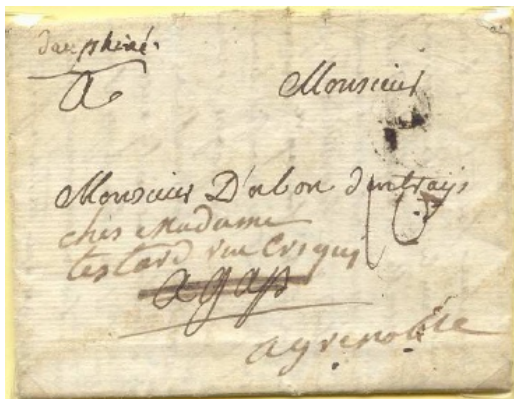 dauphiné.
A Monsieur
Monsieur D'abon dantrays
chés Madame
testard rue Crequi
a gap
a grenoble